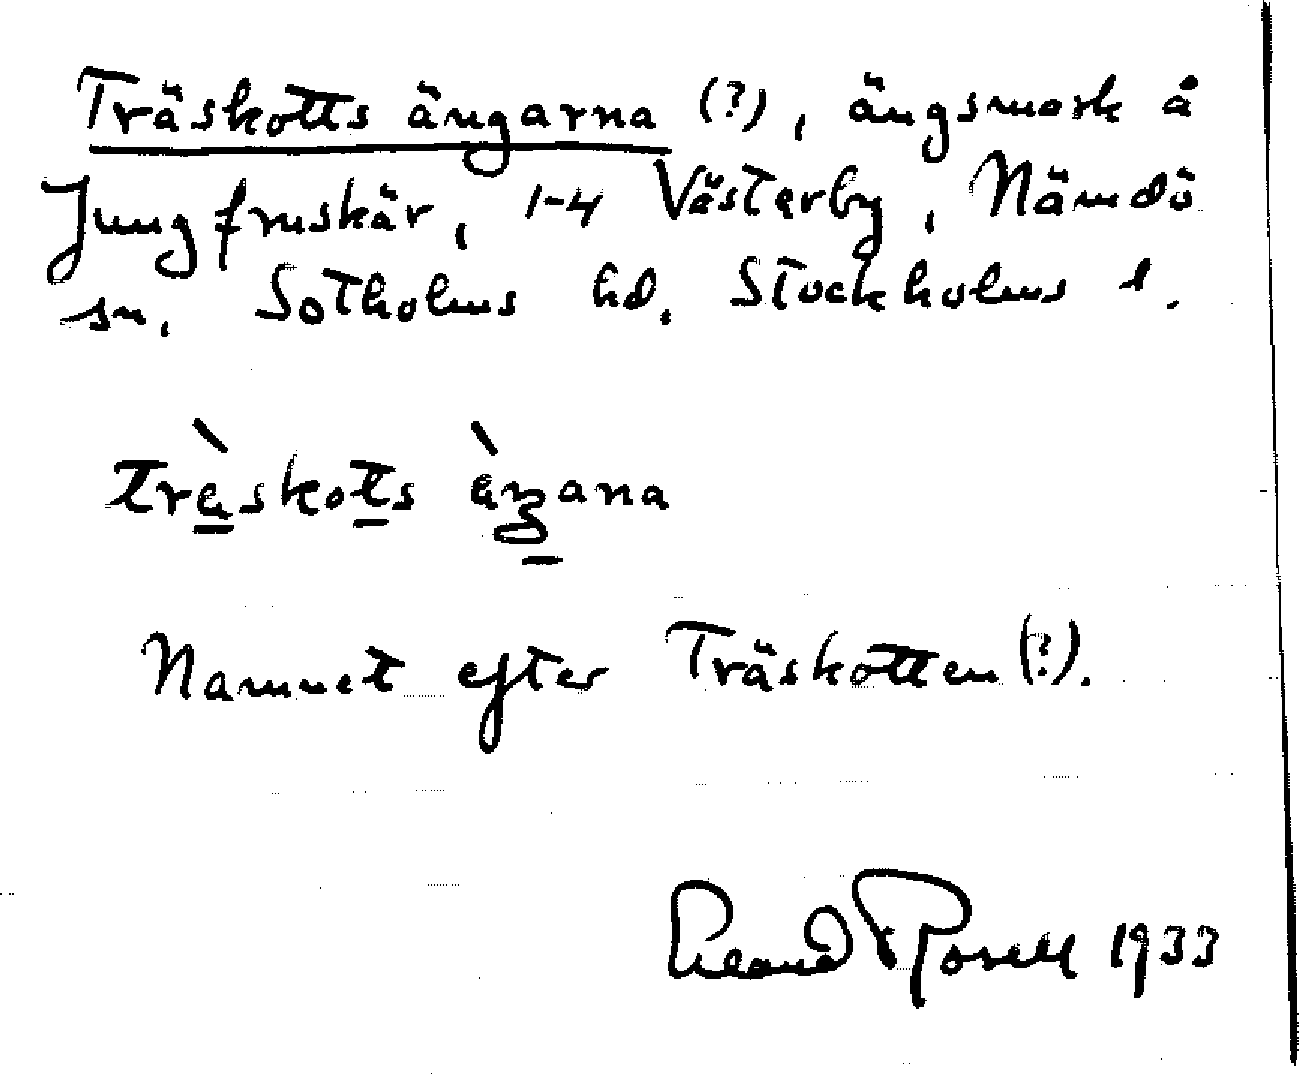 Träskotts ängarna (?), ängsmark å
Jungfruskär, 1-4 Västerby, Nämdö
sn. Sotholms hd. Stockholms l.
trä̀skots ä̀ŋana
Namnet efter Träskotten (?).
Rosell 1933